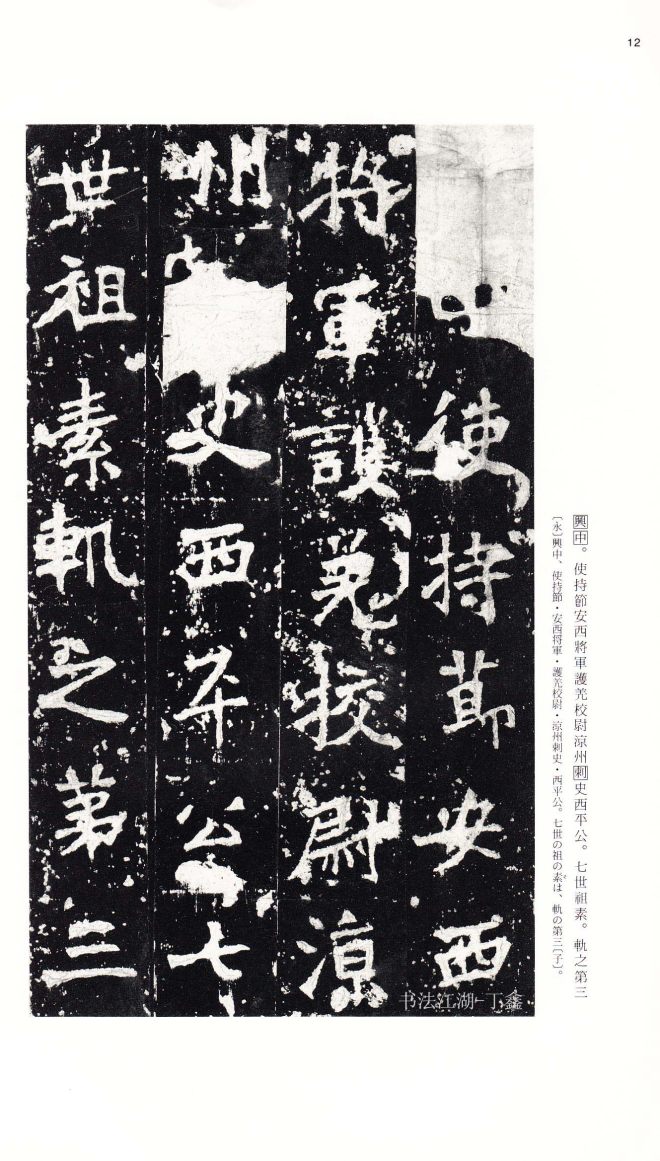 12
興中。使持節安西將軍護羌校尉涼州刺史西平公。七世祖素。軌之第三
〔永〕興中、使持節・安西将軍・護羌校尉・涼州刺史・西平公。七世の祖の素は、軌の第三〔子〕。
使持節安西
將軍護羌校尉涼
州史西平公七
世祖素軌之第三
书法江湖-丁鑫